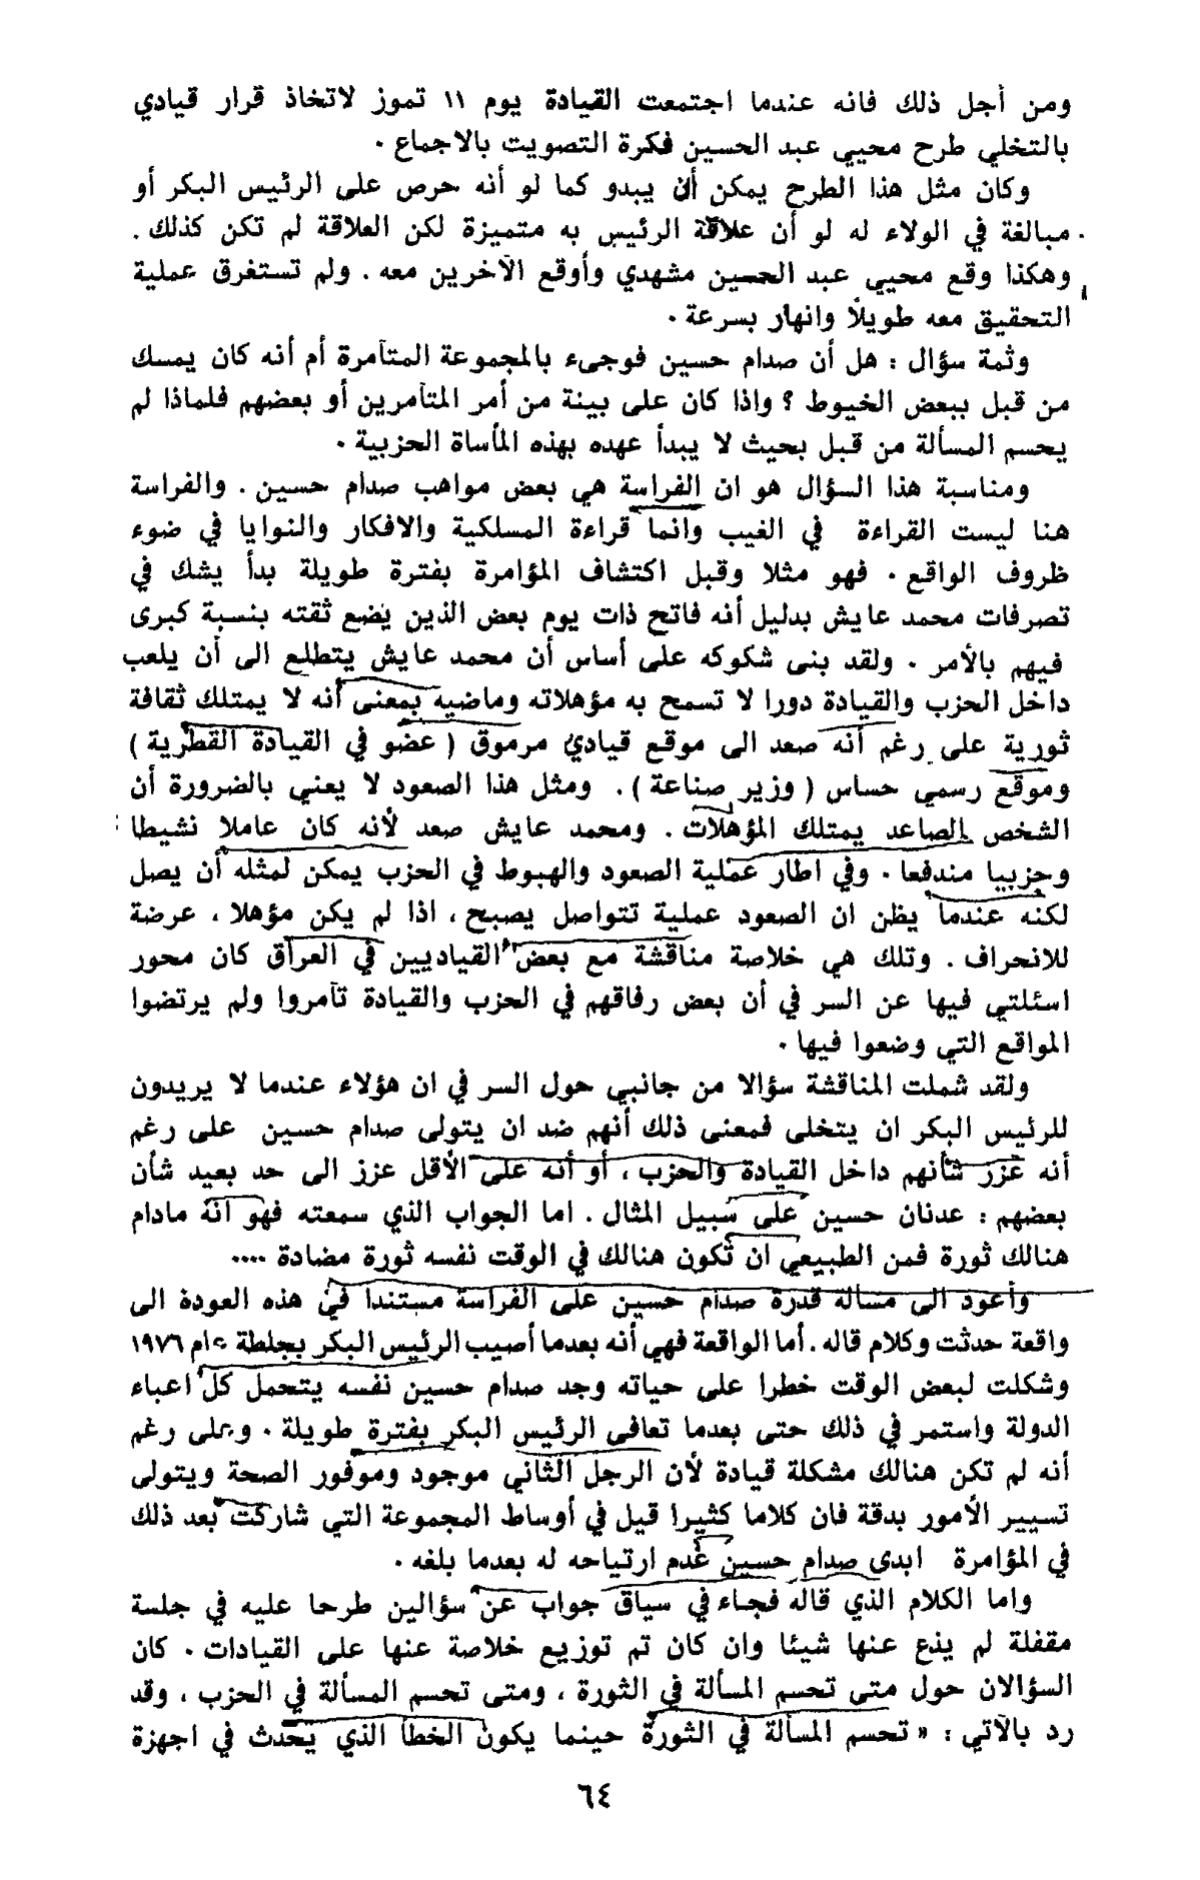 ومن أجل ذلك فانه عندما اجتمعت القيادة يوم ١١ تموز لاتخاذ قرار قيادي
بالتخلي طرح محيي عبد الحسين فكرة التصويت بالاجماع .
وكان مثل هذا الطرح يمكن أن يبدو كما لو أنه حرص على الرئيس البكر أو
مبالغة في الولاء له لو أن علاقة الرئيس به متميزة لكن العلاقة لم تكن كذلك .
وهكذا وقع محيي عبد الحسين مشهدي وأوقع الآخرين معه . ولم تستغرق عملية
التحقيق معه طويلاً وانهار بسرعة .
وثمة سؤال : هل أن صدام حسين فوجىء بالمجموعة المتآمرة أم أنه كان يمسك
من قبل ببعض الخيوط ؟ واذا كان على بينة من أمر المتآمرين أو بعضهم فلماذا لم
يحسم المسألة من قبل بحيث لا يبدأ عهده بهذه المأساة الحزبية .
ومناسبة هذا السؤال هو ان الفراسة هي بعض مواهب صدام حسين . والفراسة
هنا ليست القراءة في الغيب وانما قراءة المسلكية والافكار والنوايا في ضوء
ظروف الواقع . فهو مثلا وقبل اكتشاف المؤامرة بفترة طويلة بدأ يشك في
تصرفات محمد عايش بدليل أنه فاتح ذات يوم بعض الذين يضع ثقته بنسبة كبرى
فيهم بالأمر . ولقد بنى شكوكه على أساس أن محمد عايش يتطلع الى أن يلعب
داخل الحزب والقيادة دورا لا تسمح به مؤهلاته وماضيه بمعنى أنه لا يمتلك ثقافة
ثورية على رغم أنه صعد الى موقع قيادي مرموق ( عضو في القيادة القطرية )
وموقع رسمي حساس ( وزير صناعة ) . ومثل هذا الصعود لا يعني بالضرورة أن
الشخص الصاعد يمتلك المؤهلات . ومحمد عايش صعد لأنه كان عاملا نشيطا
وحزبيا مندفعا . وفي اطار عملية الصعود والهبوط في الحزب يمكن لمثله أن يصل
لكنه عندما يظن ان الصعود عملية تتواصل يصبح ، اذا لم يكن مؤهلا ، عرضة
للانحراف . وتلك هي خلاصة مناقشة مع بعض القياديين في العراق كان محور
اسئلتي فيها عن السر في أن بعض رفاقهم في الحزب والقيادة تآمروا ولم يرتضوا
المواقع التي وضعوا فيها .
ولقد شملت المناقشة سؤالا من جانبي حول السر في ان هؤلاء عندما لا يريدون
للرئيس البكر ان يتخلى فمعنى ذلك أنهم ضد ان يتولى صدام حسين على رغم
أنه عزز شأنهم داخل القيادة والحزب ، أو أنه على الأقل عزز الى حد بعيد شأن
بعضهم : عدنان حسين على سبيل المثال . اما الجواب الذي سمعته فهو انه مادام
هنالك ثورة فمن الطبيعي ان تكون هنالك في الوقت نفسه ثورة مضادة ....
وأعود الى مسألة قدرة صدام حسين على الفراسة مستندا في هذه العودة الى
واقعة حدثت وكلام قاله . أما الواقعة فهي أنه بعدما أصيب الرئيس البكر بجلطة عام ١٩٧٦
وشكلت لبعض الوقت خطرا على حياته وجد صدام حسين نفسه يتحمل كل اعباء
الدولة واستمر في ذلك حتى بعدما تعافى الرئيس البكر بفترة طويلة . وعلى رغم
أنه لم تكن هنالك مشكلة قيادة لأن الرجل الثاني موجود وموفور الصحة ويتولى
تسيير الأمور بدقة فان كلاما كثيرا قيل في أوساط المجموعة التي شاركت بعد ذلك
في المؤامرة ابدى صدام حسين عدم ارتياحه له بعدما بلغه .
واما الكلام الذي قاله فجاء في سياق جواب عن سؤالين طرحا عليه في جلسة
مقفلة لم يذع عنها شيئا وان كان تم توزيع خلاصة عنها على القيادات . كان
السؤالان حول متى تحسم المسألة في الثورة ، ومتى تحسم المسألة في الحزب ، وقد
رد بالآتي : « تحسم المسألة في الثورة حينما يكون الخطأ الذي يحدث في اجهزة
٦٤